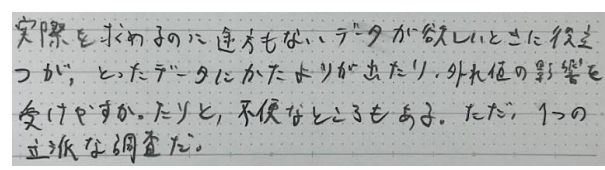 実際を求めるのに途方もない、データが欲しいときに役立
つが、とったデータにかたよりが出たり、外れ値の影響を
受けやすかったりと、不便なところもある。ただ、1つの
立派な調査だ。